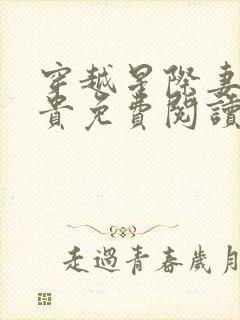 穿越星際妻
貴免費閱讀
走過青春歲月